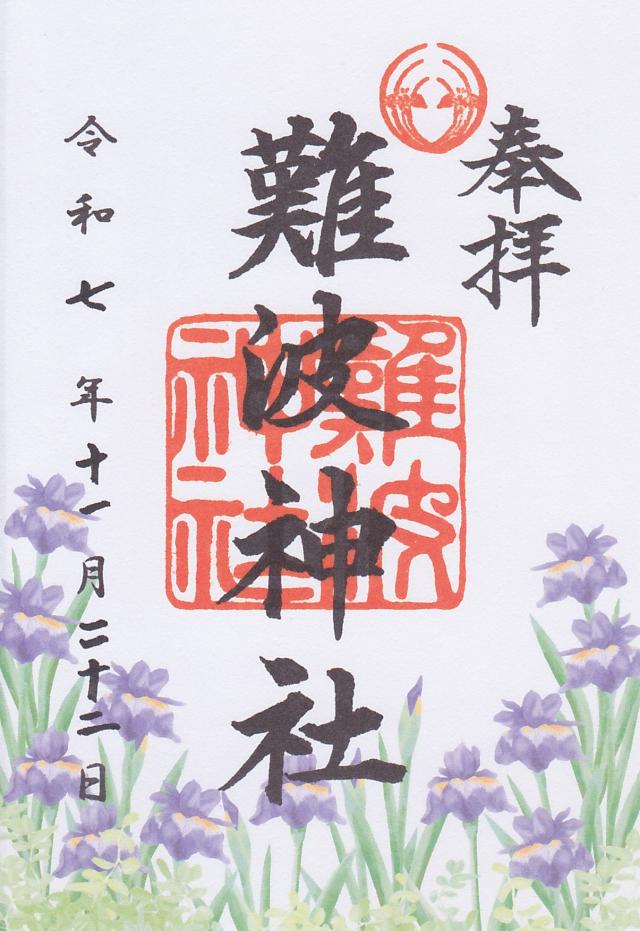 奉拝
難波神社
難波神社
令和七年十一月二十二日